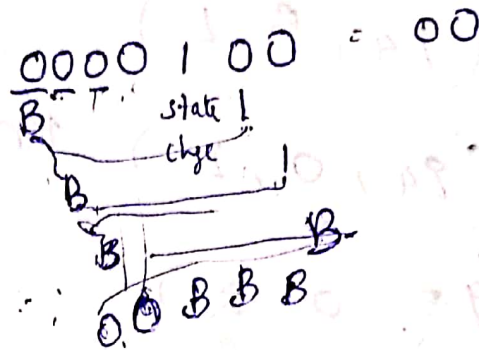 0000 1 00 = 00
B state 1
chge 1
B
B B
∴ 0 0 B B B